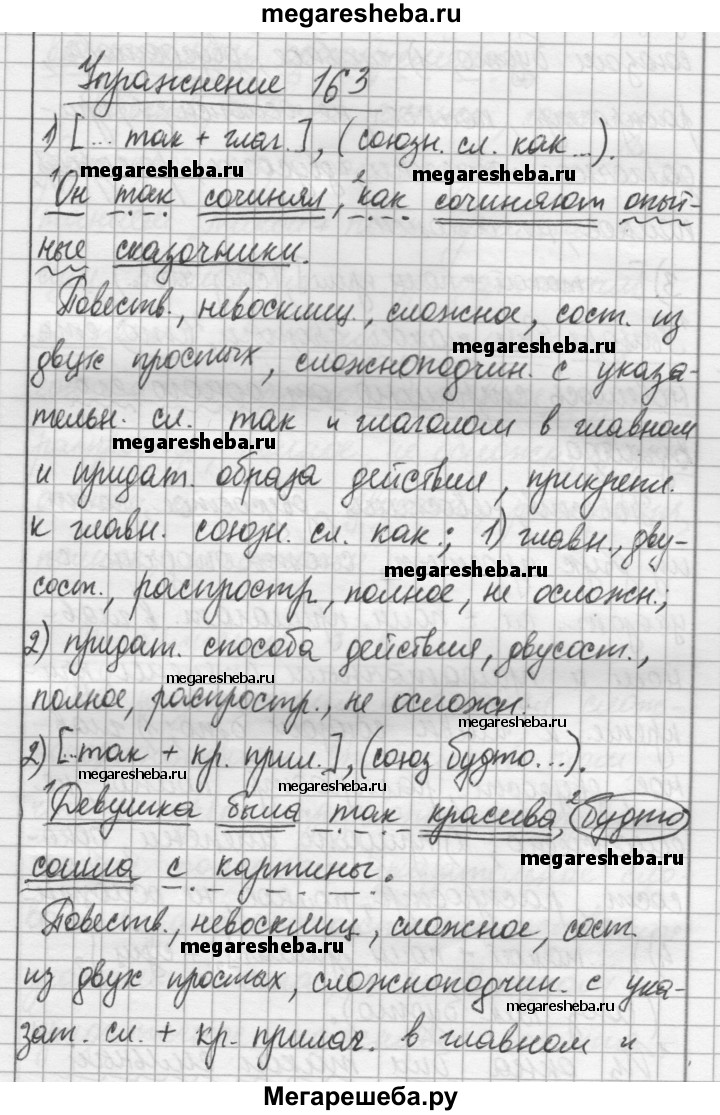 megaresheba.ru
Упражнение 163
1) [... так + глаг.], (союзн. сл. как ...).
megaresheba.ru megaresheba.ru
1Он так сочинял, 2как сочиняют опыт-
ные сказочники.
Повеств., невосклиц., сложное, сост. из
megaresheba.ru
двух простых, сложноподчин. с указа-
тельн. сл. так и глаголом в главном
megaresheba.ru
и придат. образа действия, прикрепл.
к главн. союзн. сл. как; 1) главн., дву-
megaresheba.ru
сост., распростр., полное, не осложн.;
2) придат. способа действия, двусост.,
megaresheba.ru
полное, распростр., не осложн.
megaresheba.ru
2) [..так + кр. прил.], (союз будто...).
megaresheba.ru megaresheba.ru
1Девушка была так красива, 2будто
megaresheba.ru
сошла с картины.
Повеств., невосклиц, сложное, сост.
megaresheba.ru
из двух простых, сложноподчин. с ука-
megaresheba.ru
зат. сл. + кр. прилаг. в главном и
Мегарешеба.ру